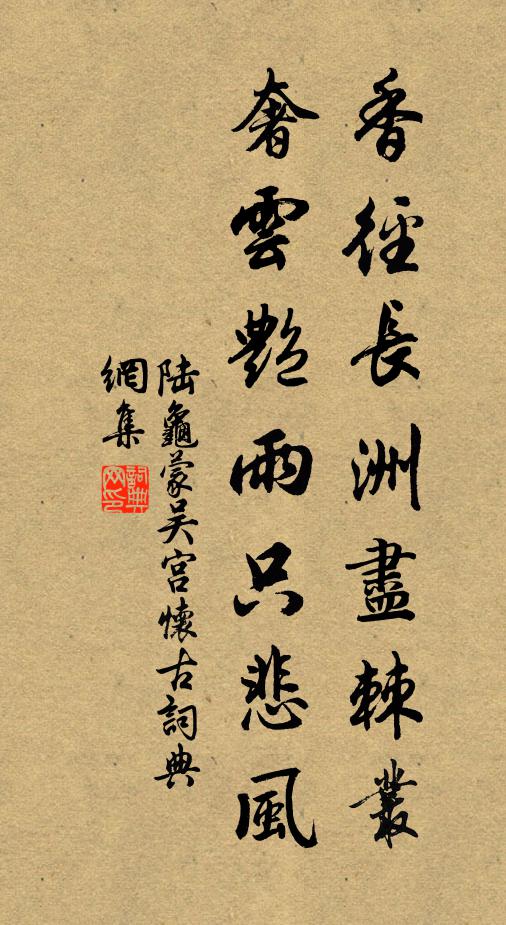 香徑長洲盡棘叢
奢雲艷雨只悲風
陆龜蒙吴宮懷古詞典
網集
詞典